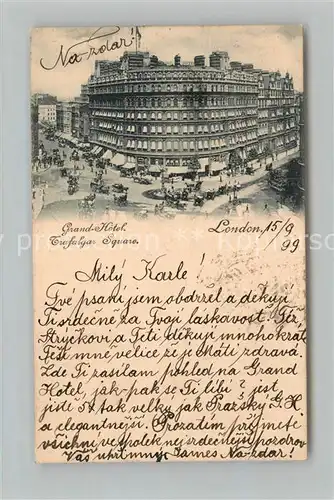 Na-zdar!
Grand-Hôtel,
Trafalgar Square.
London, 15/9
99
Milý Karle!
Tvé psaní jsem obdržel a děkuji
Ti srdečně za Tvoji laskavost. Též
Strýčkovi a Tetě děkuji mnohokrát
Těší mně velice že je Máti zdravá.
Zde Ti zasílám pohled na Grand
Hôtel, jak-pak se Ti líbí? jest
jistě 5x tak velký jak Pražský G.H
a elegantnější. Prozatím přijměte
všichni vespolek nejsrdečnější pozdrov
Váš upřímný James Na-zdar!